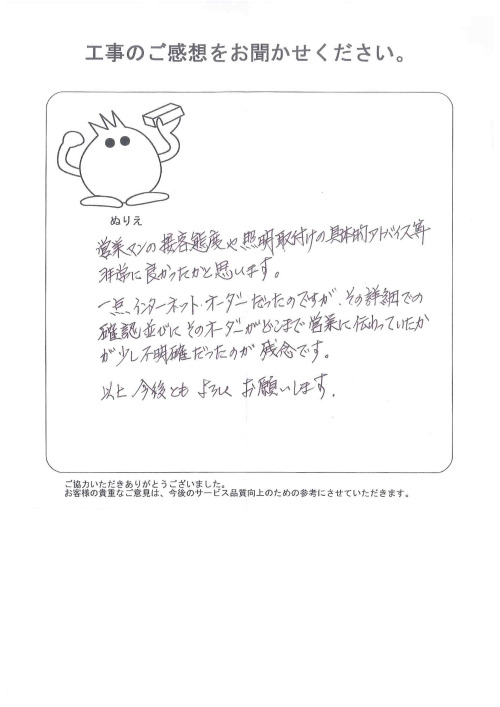 工事のご感想をお聞かせください。
ぬりえ
営業マンの接客態度や照明取付けの具体的アドバイス等
非常に良かったかと思います。
一点、インターネット・オーダーだったのですが、その詳細での
確認並びにそのオーダーがどこまで営業に伝わっていたか
が少し不明確だったのが残念です。
以上、今後ともよろしくお願いします。
ご協力いただきありがとうございました。
お客様の貴重なご意見は、今後のサービス品質向上のための参考にさせていただきます。